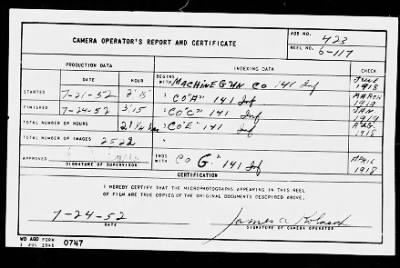 JOB NO. 423
CAMERA OPERATOR'S REPORT AND CERTIFICATE
REEL NO. 6-117
PRODUCTION DATA
INDEXING DATA
CHECK
DATE
HOUR
BEGINS WITH
MACHINE GUN CO 141 Inf
JUNE 1918
STARTED
7-21-52
2:15
" CO "A" 141 Inf
MARCH 1919
FINISHED
7-24-52
3:15
" CO "C" 141 Inf
JAN 1919
TOTAL NUMBER OF HOURS
" CO "E" 141 Inf
AUG. 1918
TOTAL NUMBER OF IMAGES
2522
ENDS WITH
CO G. 141 Inf
APRIL 1918
APPROVED
SIGNATURE OF SUPERVISOR
CERTIFICATION
I HEREBY CERTIFY THAT THE MICROPHOTOGRAPHS APPEARING IN THIS REEL
OF FILM ARE TRUE COPIES OF THE ORIGINAL DOCUMENTS DESCRIBED ABOVE.
7-24-52
DATE
SIGNATURE OF CAMERA OPERATOR
WD AGO FORM 0747
1 JUL 1945